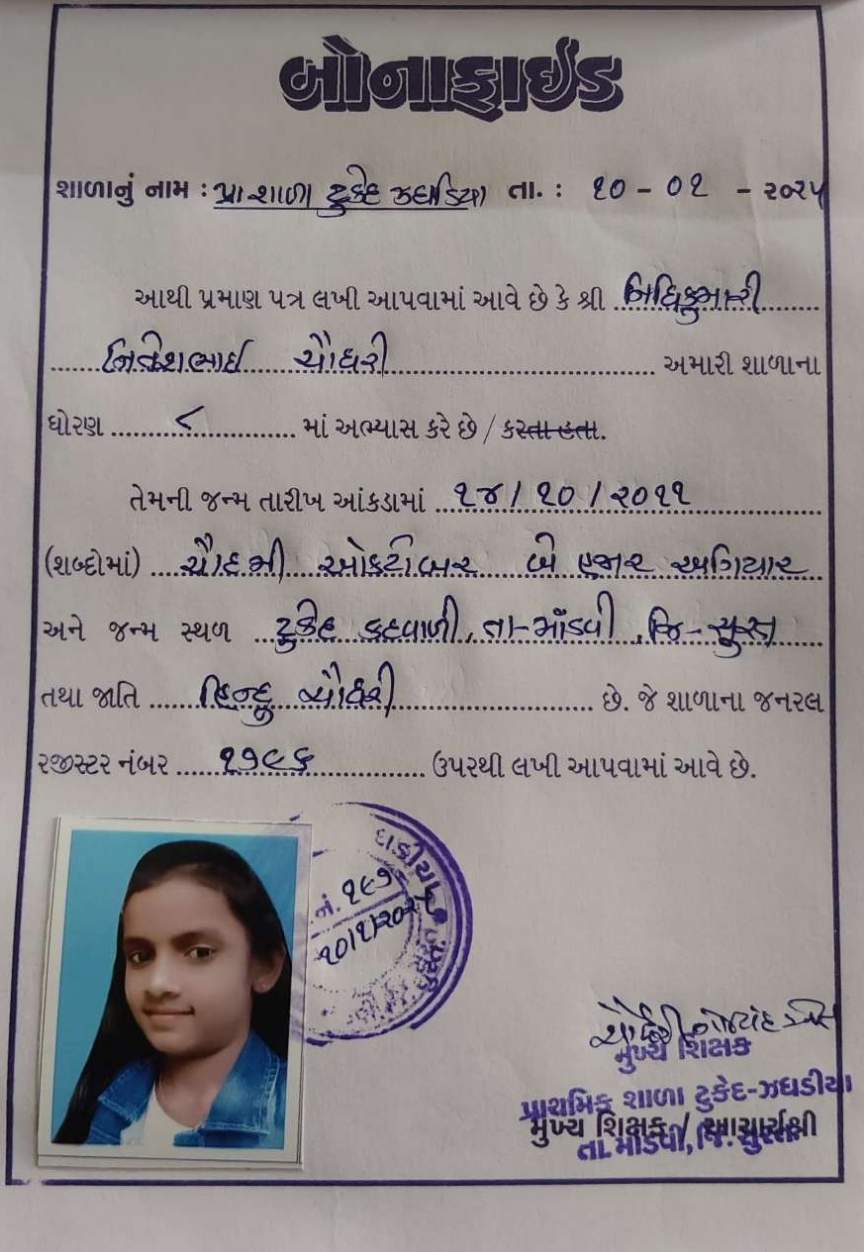 બોનાફાઈડ
શાળાનું નામ : પ્રા શાળા ટુકેદ ઝઘડિયા તા. : ૧૦ - ૦૧ - ૨૦૨૫
આથી પ્રમાણ પત્ર લખી આપવામાં આવે છે કે શ્રી નિધિકુમારી
નિતેશભાઈ ચૌધરી અમારી શાળાના
ધોરણ ૮ માં અભ્યાસ કરે છે / કરતા હતા.
તેમની જન્મ તારીખ આંકડામાં ૧૪/૧૦/૨૦૧૧
(શબ્દોમાં) ચૌદમી ઓકટોબર બે હજાર અગિયાર
અને જન્મ સ્થળ ટુકેદ કદવાળી, તા-માંડવી, જિ-સુરત
તથા જાતિ હિન્દુ ચૌધરી છે. જે શાળાના જનરલ
રજીસ્ટર નંબર ૧૭૯૬ ઉપરથી લખી આપવામાં આવે છે.
નં. ૧૯૭
૧૦/૧/૨૦૨૫
ચૌધરી
મુખ્ય શિક્ષક
પ્રાથમિક શાળા ટુકેદ-ઝઘડીયા
મુખ્ય શિક્ષક / આચાર્યશ્રી
તા. માંડવી, જિ. સુરત